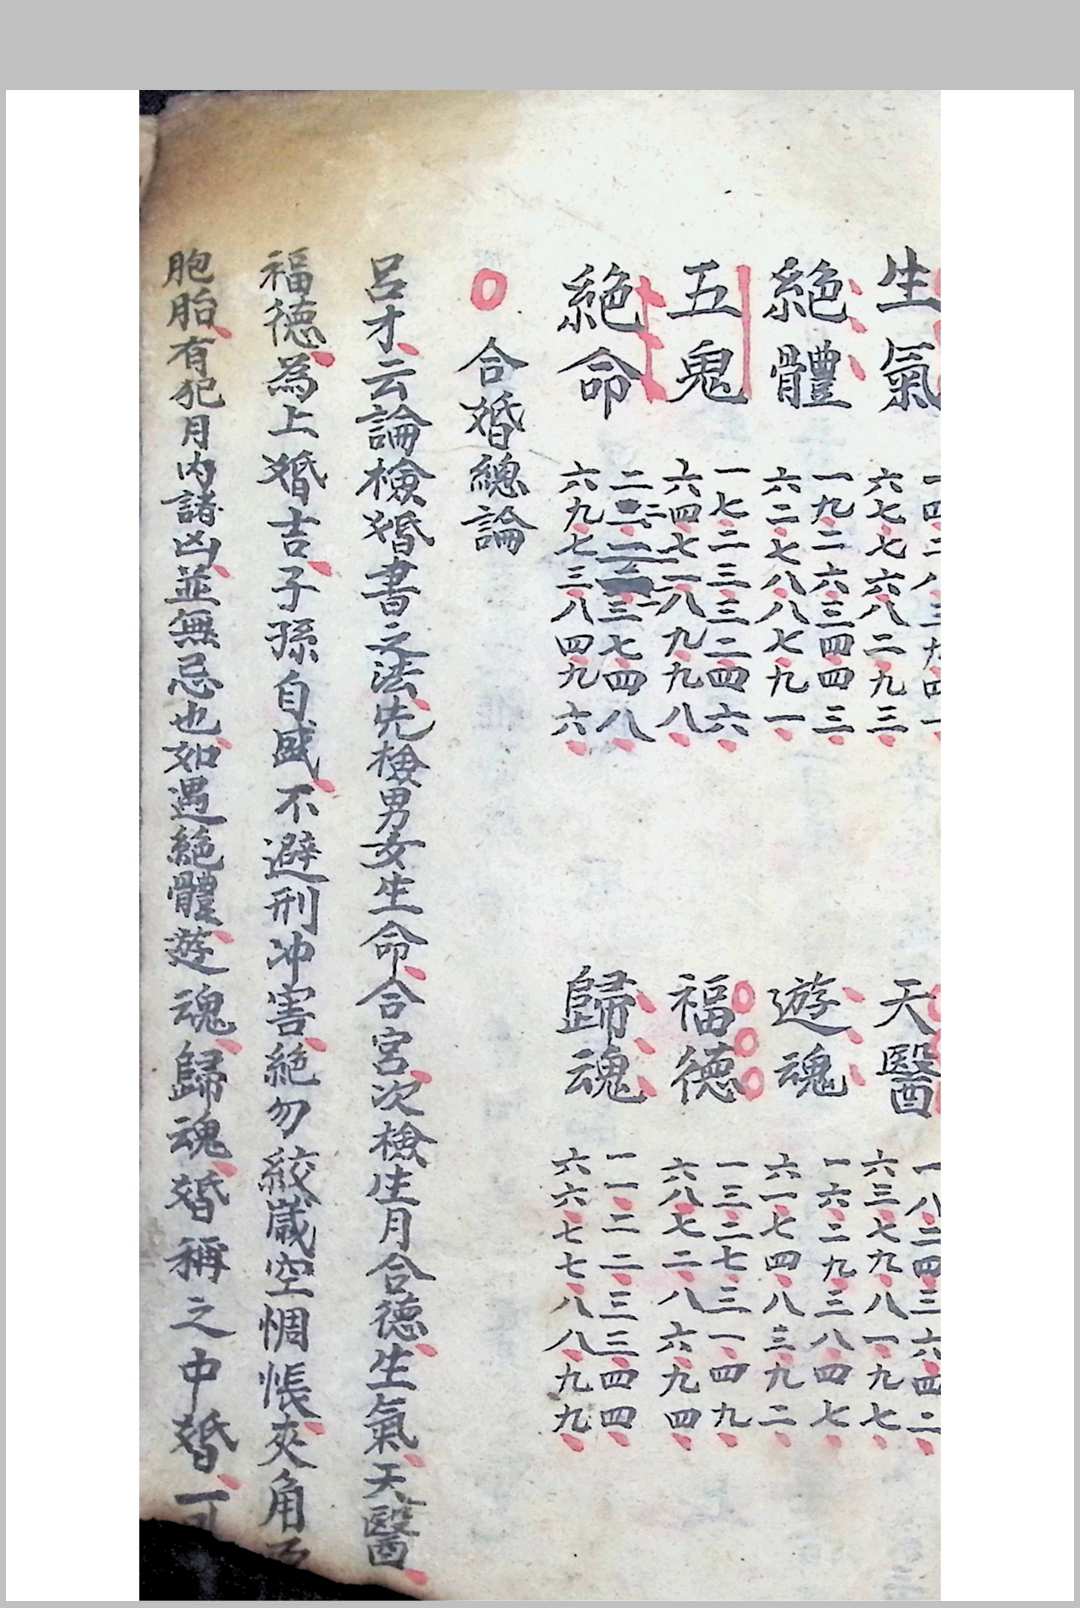 生氣
一四二八三九四一
六七七六八二九三
天醫
一八二四三六四二
六三七九八一九七
絕體
一九二六三四四三
六二七八八七九一
遊魂
一六二九三八四七
六一七四八三九二
五鬼
一七二三三二四六
六四七一八九九八
福德
一三二七三一四九
六八七二八六九四
絕命
六九七三八四九六
歸魂
一一二二三三四四
六六七七八八九九
合婚總論
呂才云論檢婚書之法先檢男女生命合宮次檢生月合德生氣天醫
福德為上婚吉子孫自盛不避刑冲害絕勿絞歲空惆悵夾角
胞胎有犯月內諸凶並無忌也如遇絕體遊魂歸魂婚稱之中婚